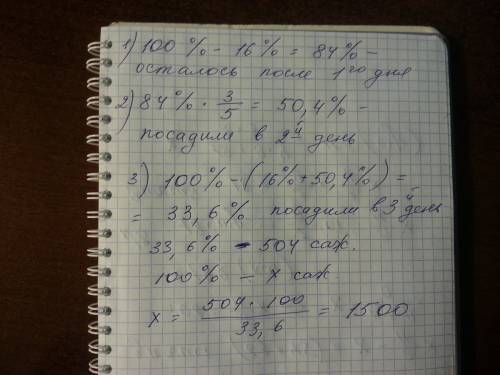 1) 100% - 16% = 84% -
осталось после 1го дня
2) 84% · 3/5 = 50,4% -
посадили в 2й день
3) 100% - (16% + 50,4%) =
= 33,6% посадили в 3й день
33,6% - 504 саж.
100% - x саж.
x = 504 · 100 / 33,6 = 1500